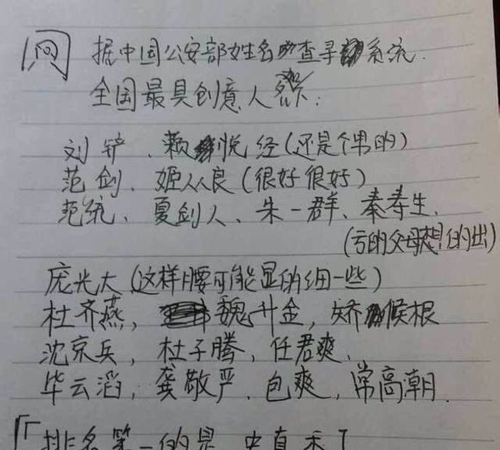 问 据中国公安部姓名查寻系统.
全国最具创意人名:
刘铲、赖悦经(还是个男的)
范剑、姬从良(很好很好)
范统、夏剑人、朱一群、秦寿生、
(亏的父母想的出)
庞光大(这样腰可能显的细一些)
杜齐燕, 魏斗金, 娇候根
沈京兵, 杜子腾, 任君爽、
毕云滔, 龚敬严, 包爽, 常高朝.
排名第一的是 史真